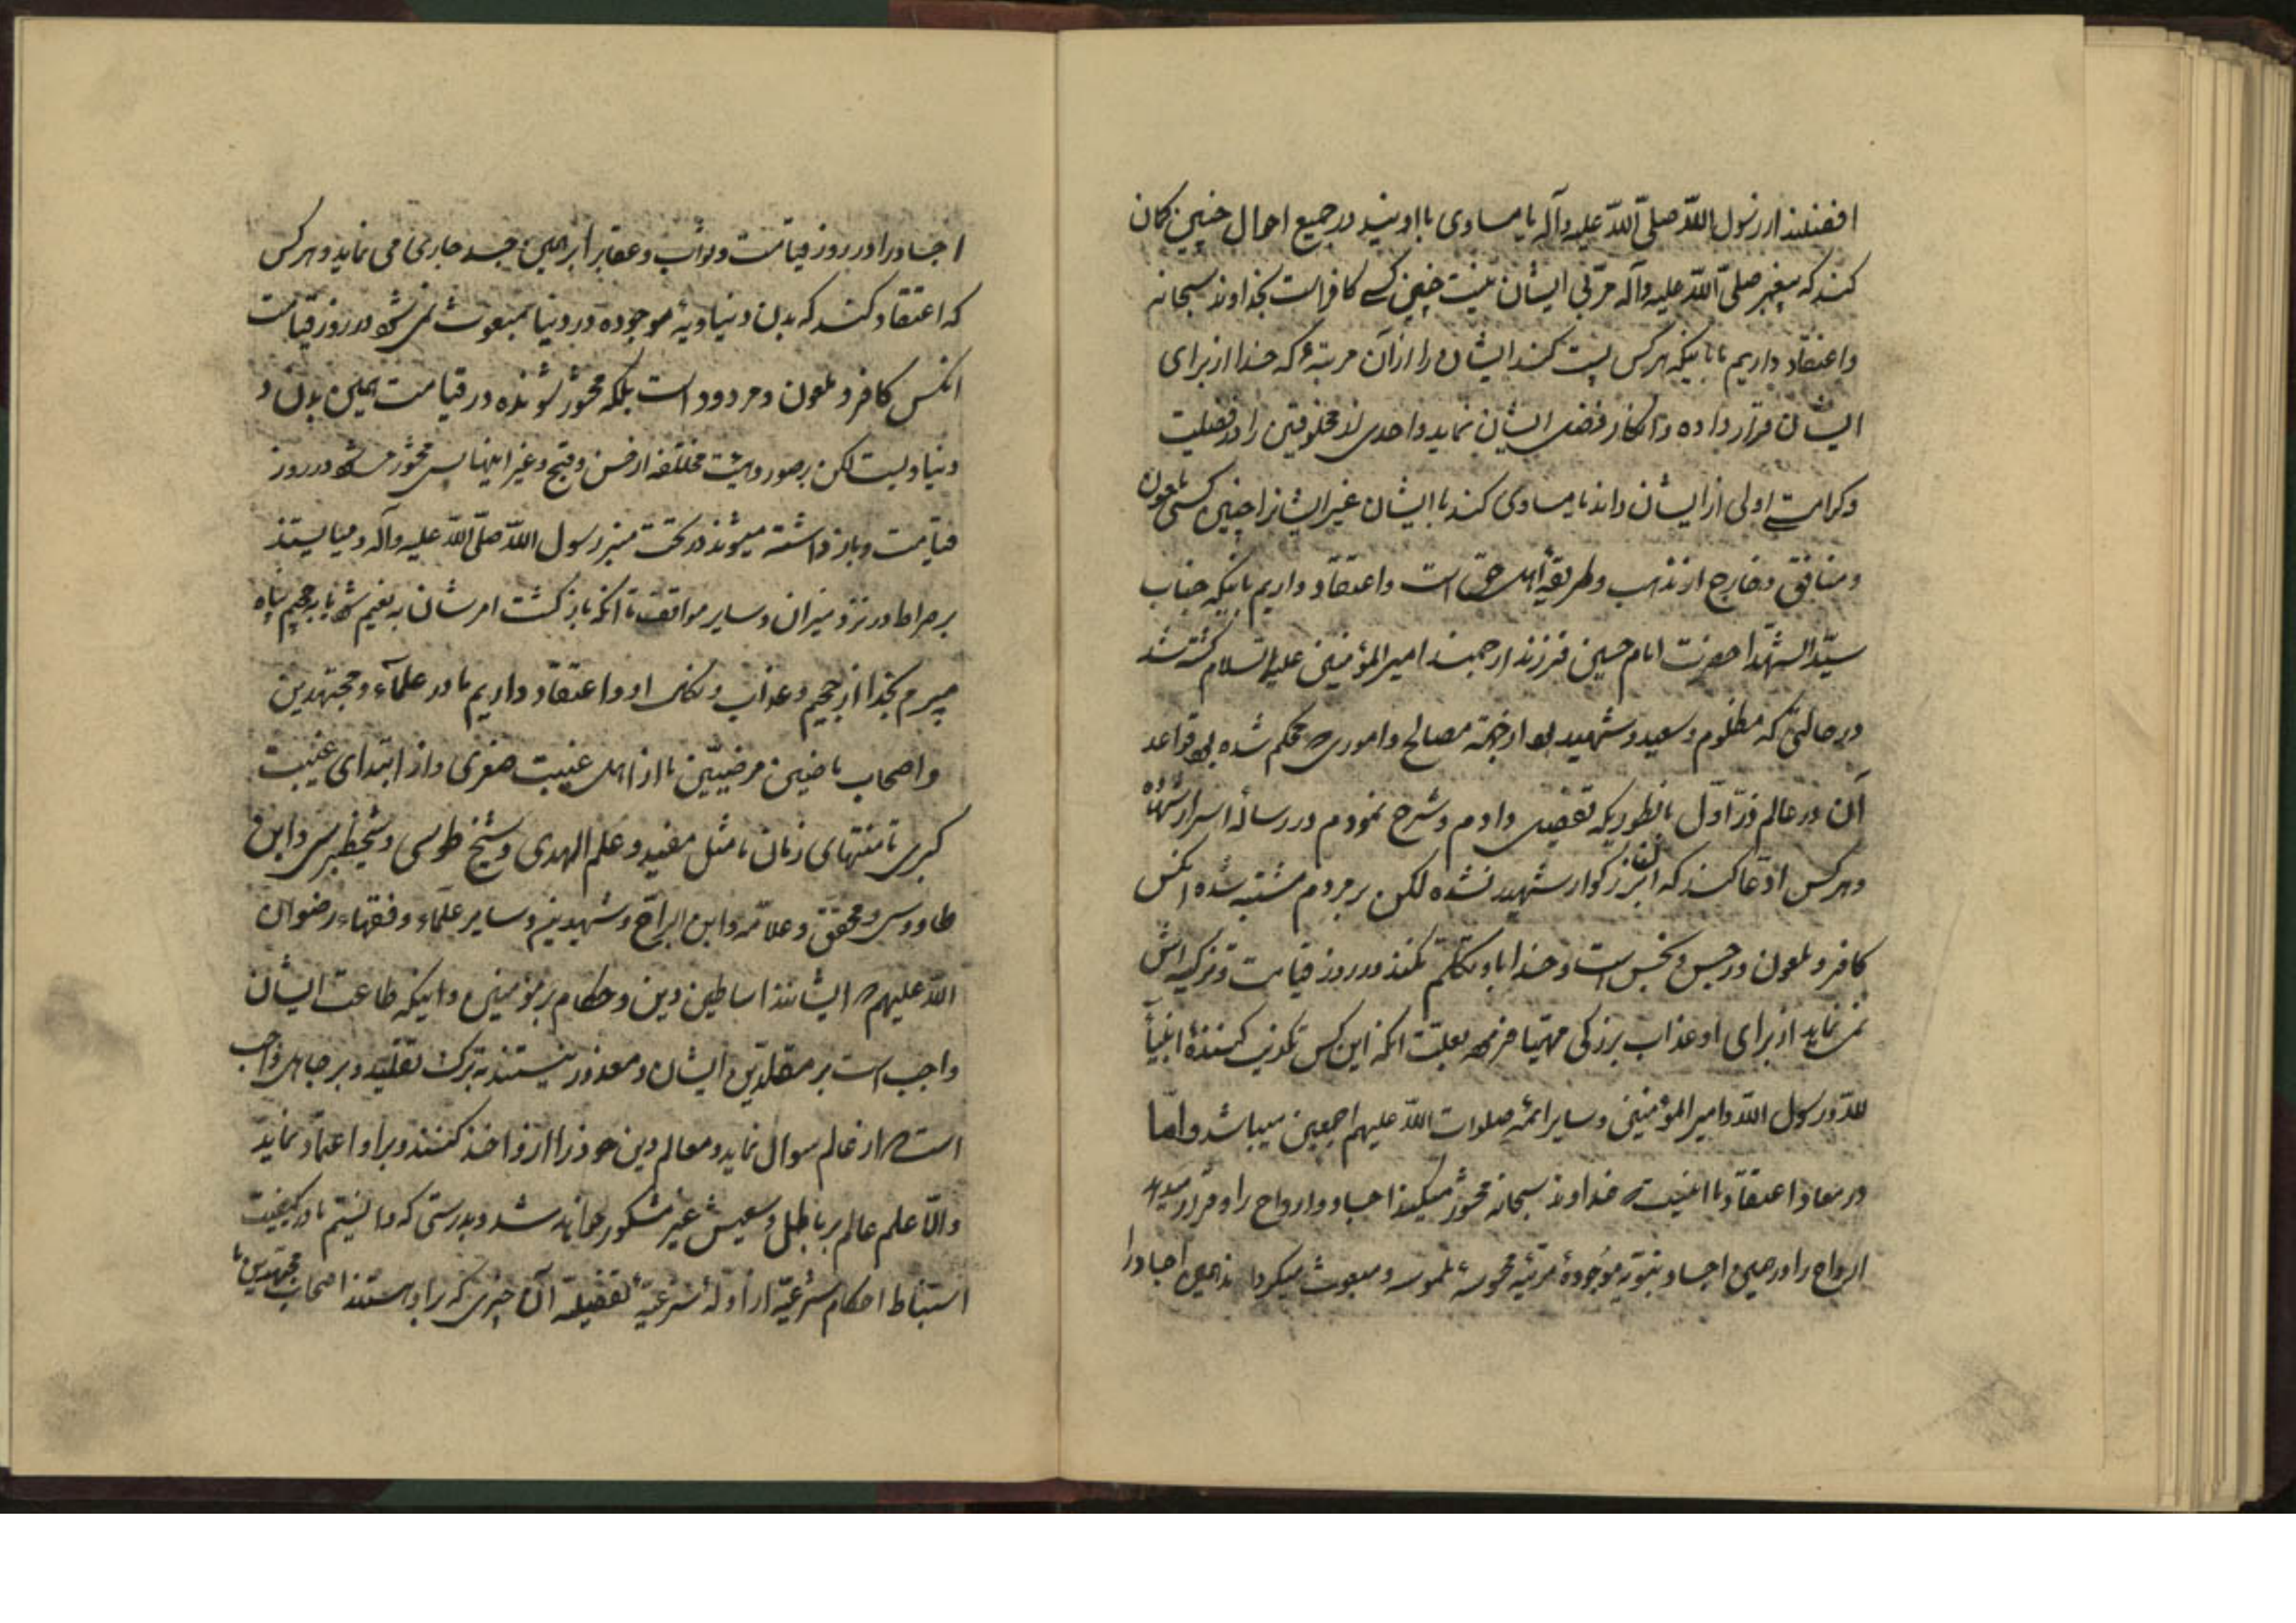 افضلند از رسول الله صلی الله علیه وآله یا مساوی با اویند در جمیع احوال چنین کمان
کنند که پیغمبر صلی الله علیه وآله مربی ایشان نیست چنین کسی کافر است بخداوند سبحانه
واعتقاد داریم ما باینکه هرکس پست کند ایشان را از آن مرتبهٔ که خدا از برای
ایشان قرار داده و انکار فضل ایشان نماید واحدی از مخلوقین را در فضیلت
وکرامت اولی از ایشان داند یا مساوی کند با ایشان غیر ایشانرا چنین کسی ملعون
ومنافق وخارج از مذهب وطریقهٔ اهل حق است واعتقاد داریم باینکه جناب
سیّد الشهدا حضرت امام حسین فرزند ارجمند امیر المؤمنین علیه السلام کشته شد
در حالتی که مظلوم وسعید وشهید بود از جهة مصالح واموری که محکم شده بود قواعد
آن در عالم ذرّ اوّل بانطوریکه تفصیل دادم وشرح نمودم در رساله اسرار شهاده
وهرکس ادّعا کند که آن بزرکوار شهید نشده لکن بر مردم مشتبه شده انکس
کافر وملعون ورجس ونجس است وخدا با او تکلّم نکند در روز قیامت وتزکیه اش
نمی نماید از برای او عذاب بزرکی مهیّا فرموده بعلت انکه این کس تکذیب کننده انبیآ
لله ورسول الله وامیر المؤمنین وسایر ائمه صلوات الله علیهم اجمعین میباشد وامّا
در معاد اعتقاد ما اینست که خداوند سبحانه محشور میکند اجساد وارواح را وقرار میدهد
ارواح را در همین اجساد موجودهٔ مرئیهٔ محسوسهٔ ملموسه ومبعوث میکرداند همین اجساد را
اجساد را در روز قیامت وثواب وعقاب را بر همین جسد جاری می نماید وهرکس
که اعتقاد کند که بدن دنیاویهٔ موجوده در دنیا مبعوث نمی شود در روز قیامت
انکس کافر وملعون ومردود است بلکه محشور شونده در قیامت همین بدن
دنیاویست لکن بصور وهیئت مختلفه از حسن وقبح وغیر اینها پس محشور میشود در روز
قیامت وباز داشته میشوند در تحت منبر رسول الله صلی الله علیه وآله ومیایستند
بر صراط ودر نزد میزان وسایر مواقف تا انکه بازکشت امرشان به نعیم شود یا به جحیم پناه
میبرم بخدا از جحیم وعذاب ونکال او واعتقاد داریم ما در علمآء ومجتهدین
واصحاب ماضین مرضیّین ما از اهل غیبت صغری واز ابتدای غیبت
کبری تا منتهای زمان ما مثل مفید وعلم الهدی وشیخ طوسی وشیخ طبرسی وابن
طاووس ومحقق وعلامه وابن البراج وشهیدین وسایر علماء وفقهاء رضوان
الله علیهم که ایشانند اساطین دین وحکام بر مؤمنین واینکه طاعت ایشان
واجب است بر مقلّدین ایشان ومعذور نیستند بترک تقلید وبر جاهل واجب
است که از عالم سوال نماید ومعالم دین خود را از او اخذ کنند وبر او اعتماد نماید
والّا علم عالم بر باطل وسعیش غیر مشکور خواهد شد وبدرستی که دانستیم ما در کیفیت
استنباط احکام شرعیّه از ادلهٔ شرعیهٔ تفصیلیه آن چیزی که را دانستند اصحاب مجتهدین ما